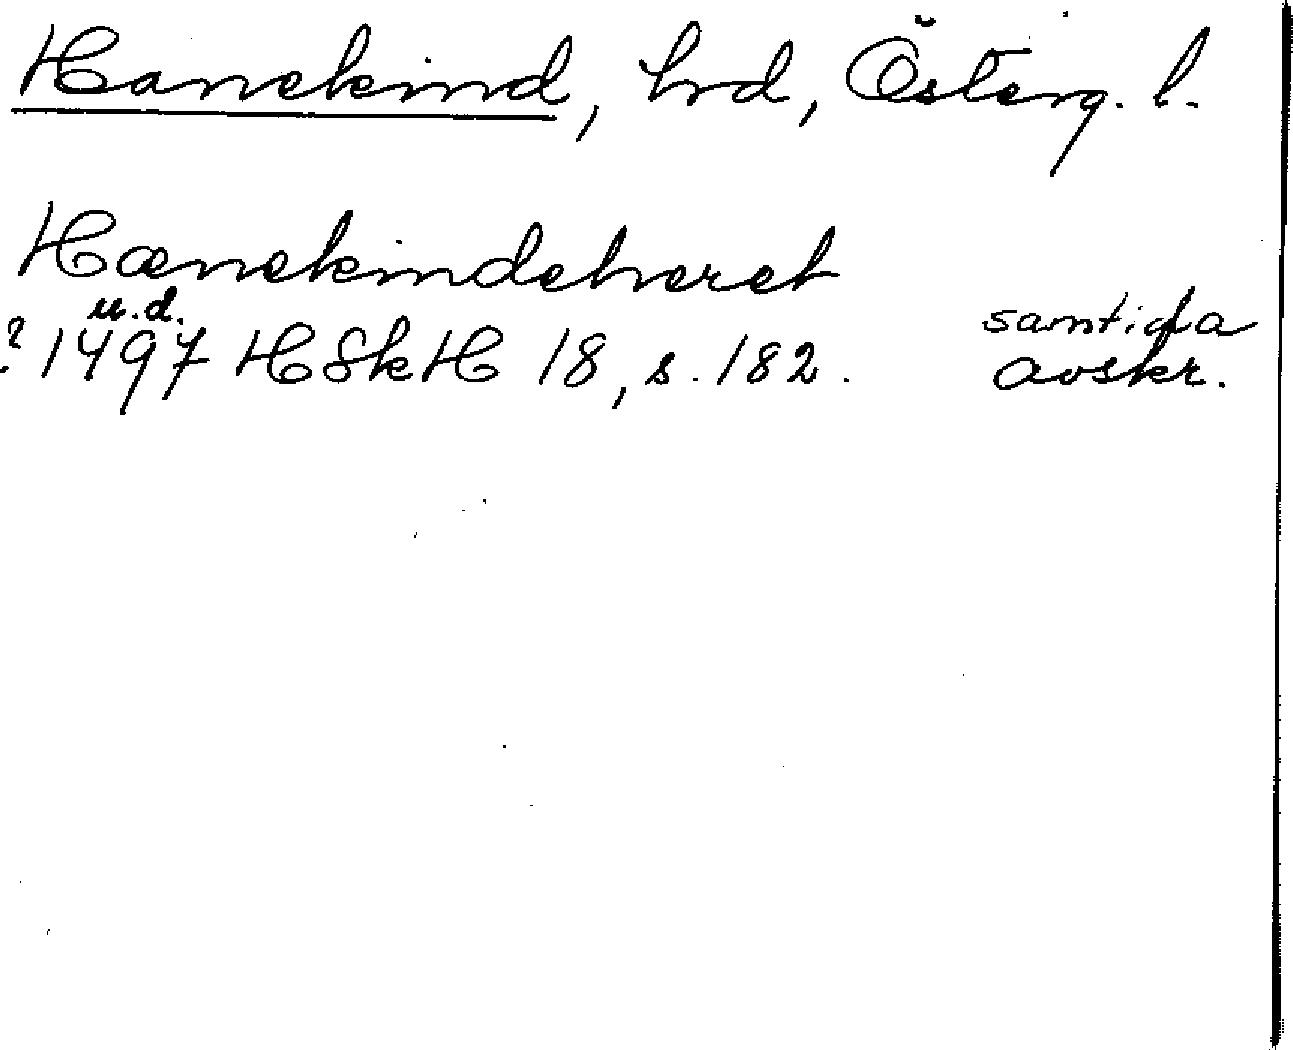 Hanekind, hrd, Österg. l.
Hænekindeheret
u.d.
? 1497 HSkH 18, s. 182. samtida
avskr.